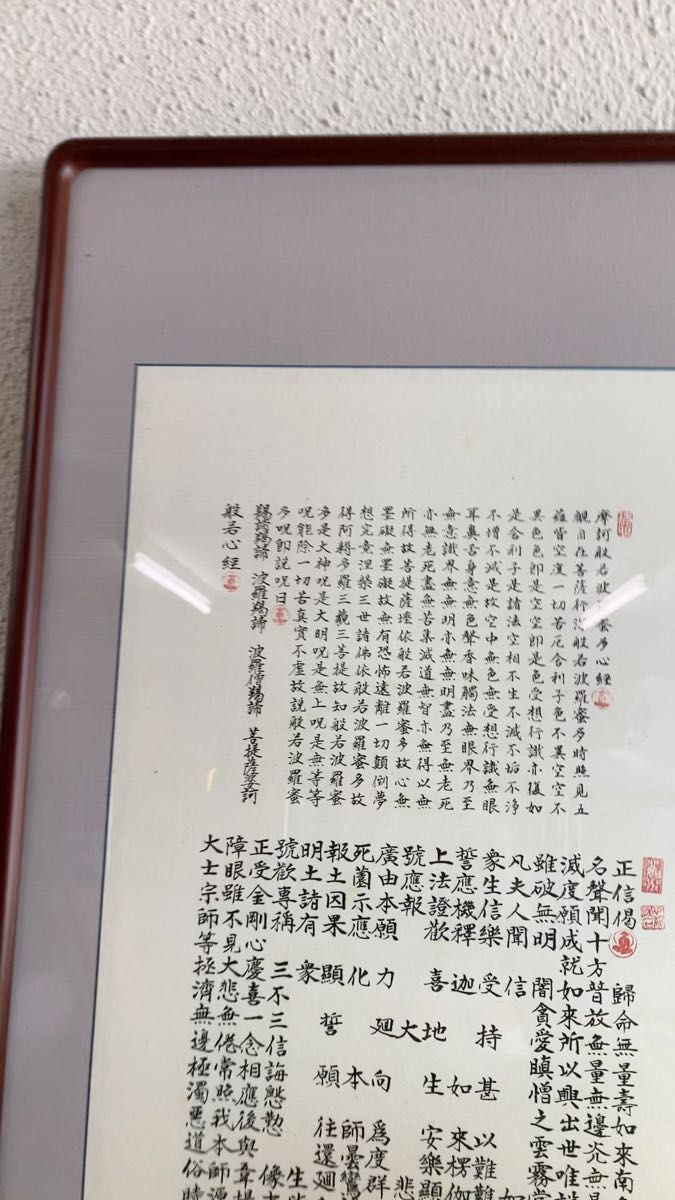 摩訶般若波羅蜜多心經
觀自在菩薩行深般若波羅蜜多時照見五
蘊皆空度一切苦厄舍利子色不異空空不
異色色即是空空即是色受想行識亦復如
是舍利子是諸法空相不生不滅不垢不淨
不增不減是故空中無色無受想行識無眼
耳鼻舌身意無色聲香味觸法無眼界乃至
無意識界無無明亦無無明盡乃至無老死
亦無老死盡無苦集滅道無智亦無得以無
所得故菩提薩埵依般若波羅蜜多故心無
罣礙無罣礙故無有恐怖遠離一切顛倒夢
想究竟涅槃三世諸佛依般若波羅蜜多故
得阿耨多羅三藐三菩提故知般若波羅蜜
多是大神呪是大明呪是無上呪是無等等
呪能除一切苦真實不虛故說般若波羅蜜
多呪即說呪曰
羯諦羯諦 波羅羯諦 波羅僧羯諦 菩提薩婆訶
般若心經
正信偈 歸命無量壽如來南
名聲聞十方普放無量無邊光無
滅度願成就如來所以興出世唯
雖破無明 闇貪愛瞋憎之雲霧常
凡夫人聞 信 如
衆生信樂 受持甚以難難
誓應機釋 迦如來楞伽
上法證歡 喜地生安樂顯
號應報 大 悲
廣由本願 力廻向為度群
死薗示應 化本師曇鸞
報土因果 顯誓願往還廻
明土諸有 衆 生
號歡專稱 三不三信誨慇懃 像
正受金剛心慶喜一念相應後與韋提
障眼雖不見大悲無倦常照我本師源
大士宗師等拯濟無邊極濁惡道俗時